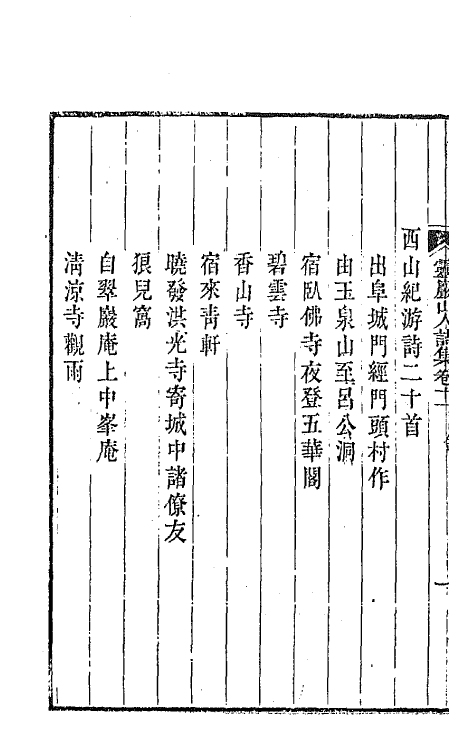 靈巖山人詩集卷十一
西山紀游詩二十首
出阜城門經門頭村作
由玉泉山至呂公洞
宿臥佛寺夜登五華閣
碧雲寺
香山寺
宿來靑軒
曉發洪光寺寄城中諸僚友
狼兒窩
自翠巖庵上中峯庵
淸涼寺觀雨